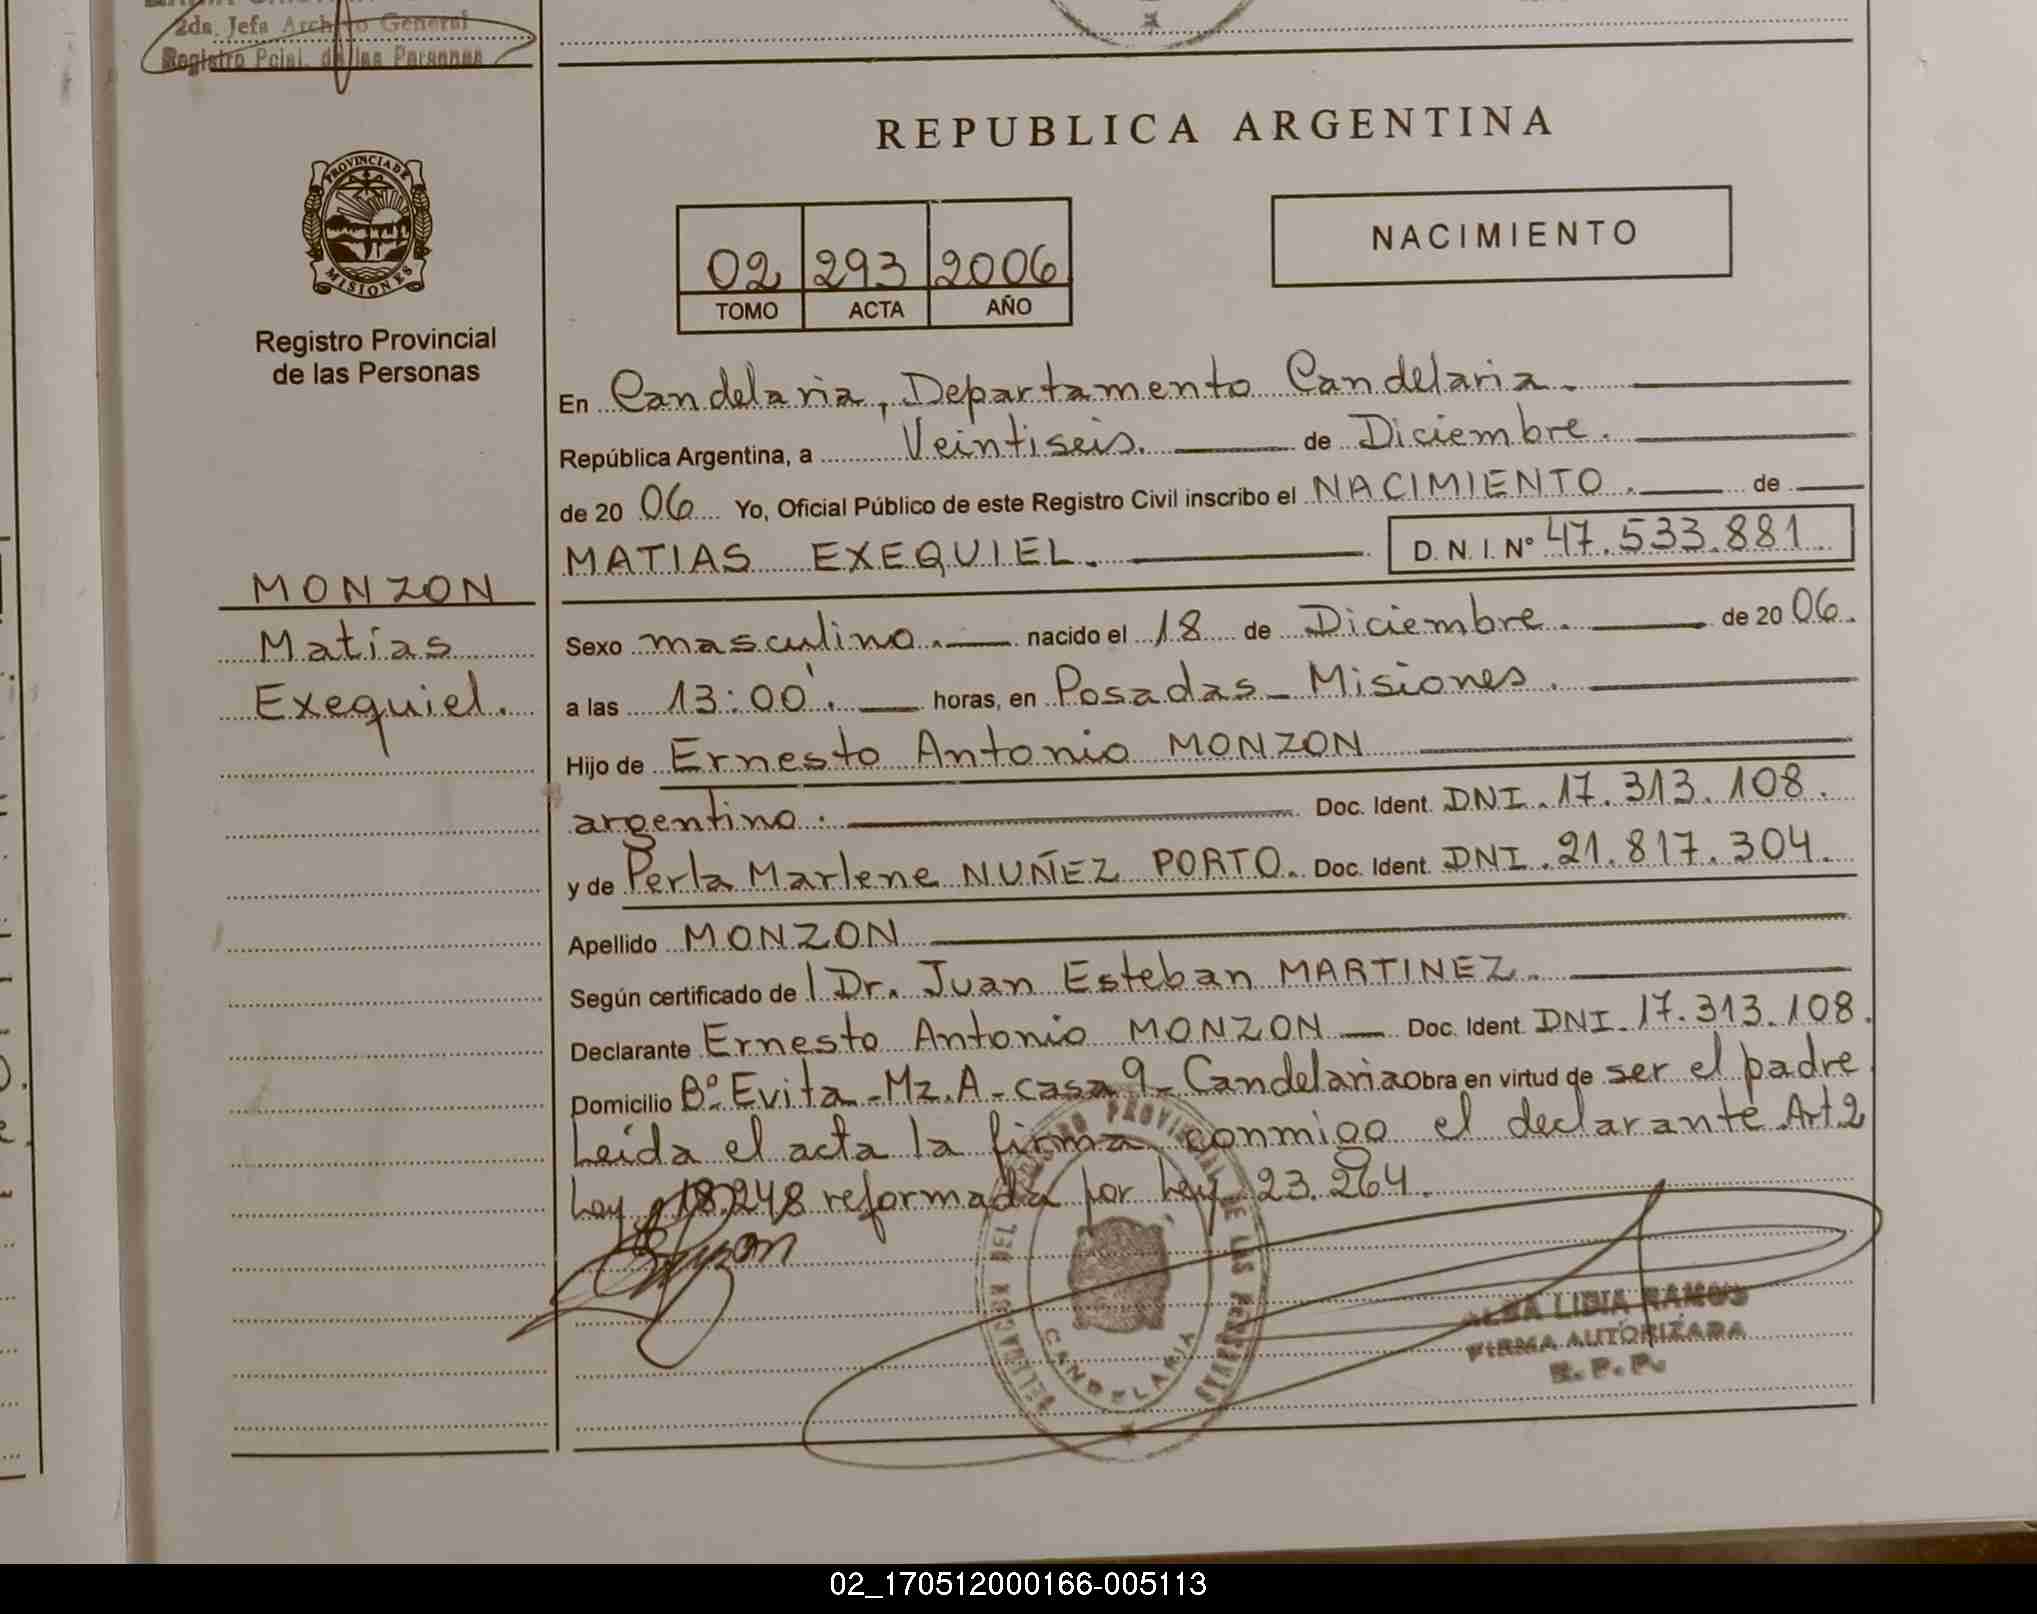 2da. Jefa Archivo General
Registro Pcial. de las Personas
REPUBLICA ARGENTINA
PROVINCIA DE
MISIONES
Registro Provincial
de las Personas
02 293 2006
TOMO ACTA AÑO
NACIMIENTO
En Candelaria, Departamento Candelaria.
República Argentina, a Veintiseis. de Diciembre.
de 20 06 Yo, Oficial Público de este Registro Civil inscribo el NACIMIENTO. de
MATIAS EXEQUIEL. D.N.I. Nº 47.533.881
MONZON
Matías
Exequiel.
Sexo masculino. nacido el 18 de Diciembre. de 20 06.
a las 13:00'. horas, en Posadas - Misiones.
Hijo de Ernesto Antonio MONZON
argentino. Doc. Ident. DNI. 17.313.108.
y de Perla Marlene NUÑEZ PORTO. Doc. Ident. DNI. 21.817.304.
Apellido MONZON
Según certificado de l Dr. Juan Esteban MARTINEZ.
Declarante Ernesto Antonio MONZON Doc. Ident. DNI. 17.313.108.
Domicilio Bº Evita - Mz. A - casa 9 - Candelaria Obra en virtud de ser el padre
Leída el acta la firma conmigo el declarante Art. 2
Ley 18.248 reformada por Ley 23.264.
DELEGACION DEL REGISTRO PROVINCIAL DE LAS PERSONAS
CANDELARIA
ALBA LIDIA RAMOS
FIRMA AUTORIZADA
R. P. P.
02_170512000166-005113